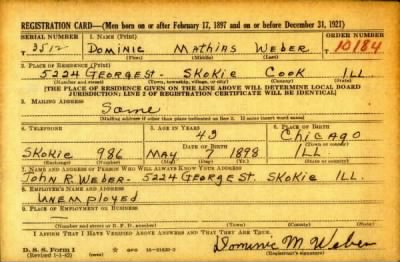 REGISTRATION CARD—(Men born on or after February 17, 1897 and on or before December 31, 1921)
SERIAL NUMBER 1. NAME (Print) ORDER NUMBER
3512 DOMINIC MATHIAS WEBER 10184
(First) (Middle) (Last)
2. PLACE OF RESIDENCE (Print)
5224 GEORGE ST - SKOKIE COOK ILL
(Number and street) (Town, township, village, or city) (County) (State)
[THE PLACE OF RESIDENCE GIVEN ON THE LINE ABOVE WILL DETERMINE LOCAL BOARD
JURISDICTION; LINE 2 OF REGISTRATION CERTIFICATE WILL BE IDENTICAL]
3. MAILING ADDRESS
Same
[Mailing address if other than place indicated on line 2. If same insert word same]
4. TELEPHONE 5. AGE IN YEARS 6. PLACE OF BIRTH
43 CHICAGO
DATE OF BIRTH (Town or county)
SKOKIE 986 MAY 7 1898 ILL
(Exchange) (Number) (Mo.) (Day) (Yr.) (State or country)
7. NAME AND ADDRESS OF PERSON WHO WILL ALWAYS KNOW YOUR ADDRESS
JOHN R. WEBER - 5224 GEORGE ST. SKOKIE ILL.
8. EMPLOYER'S NAME AND ADDRESS
UNEMPLOYED
9. PLACE OF EMPLOYMENT OR BUSINESS
(Number and street or R. F. D. number) (Town) (County) (State)
I AFFIRM THAT I HAVE VERIFIED ABOVE ANSWERS AND THAT THEY ARE TRUE.
D. S. S. Form 1 GPO
(Revised 1-5-42) Dominic M. Weber